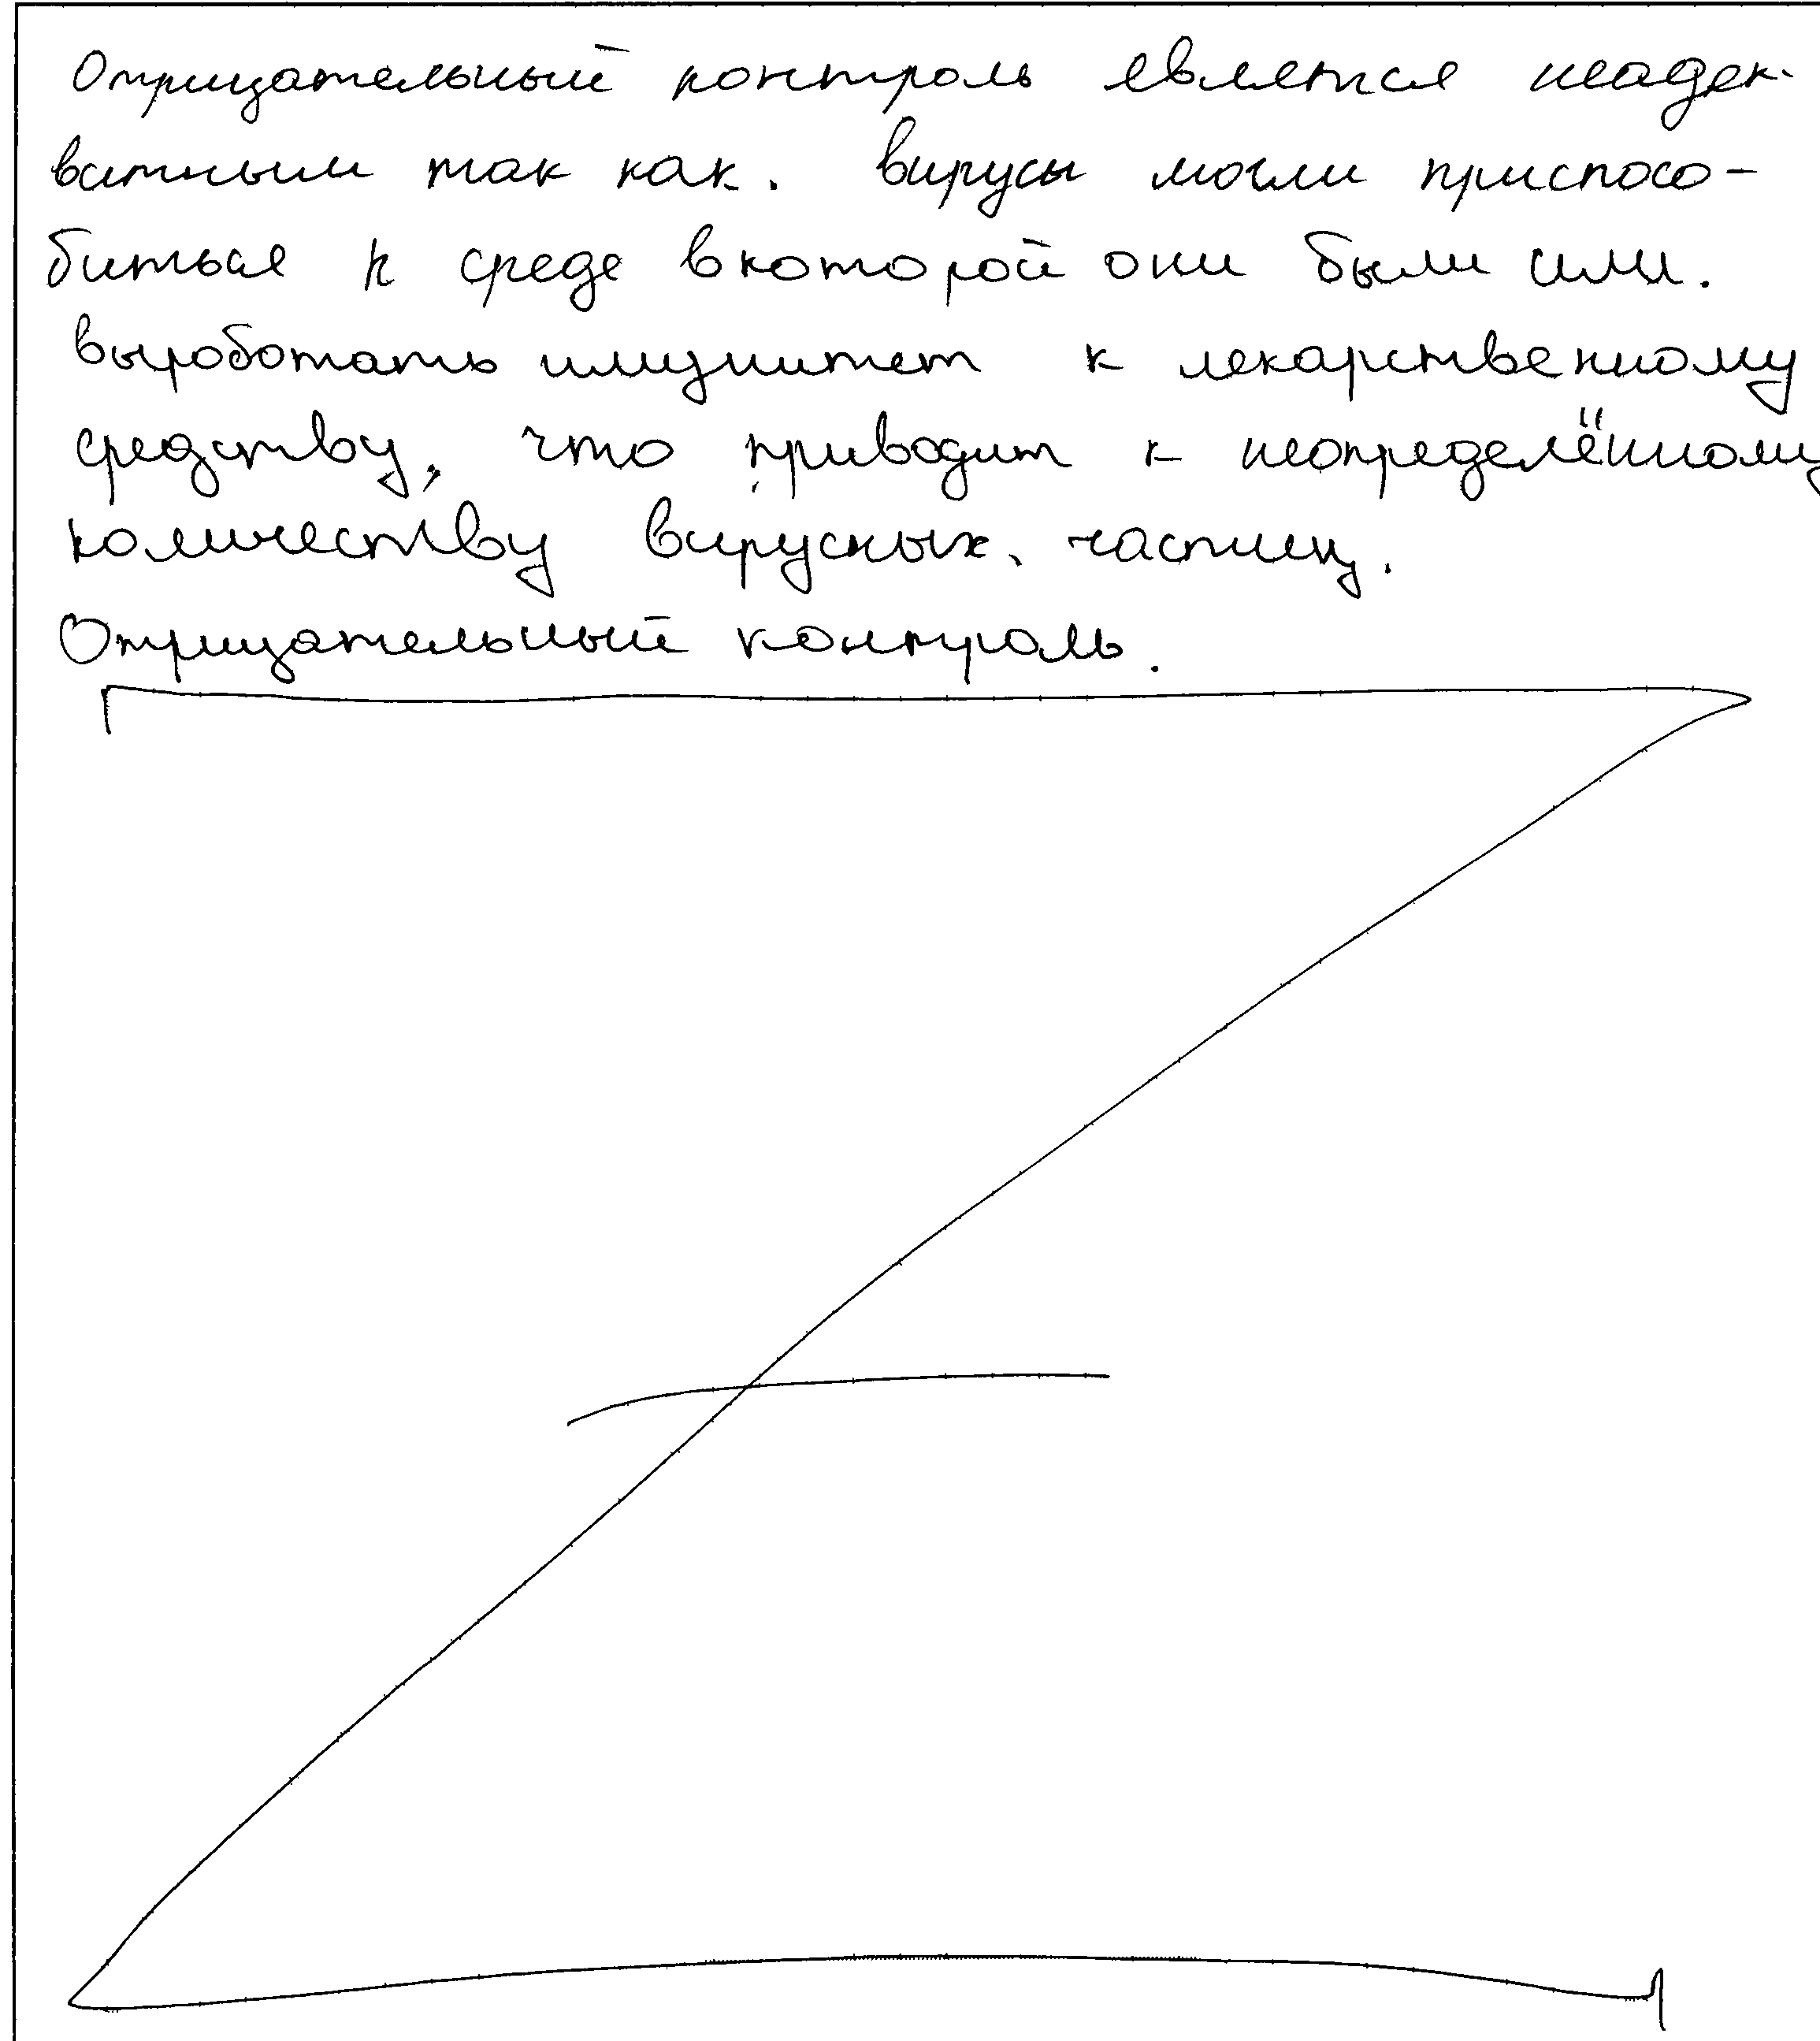 Отрицательный контроль евляется неадек-
ватным так как. вирусы могли приспосо-
биться к среде в которой они были или.
выроботать имунитет к лекарственному
средству, что приводит к неопределённому
количеству вирусных. частиц.
Отрицательный контроль.